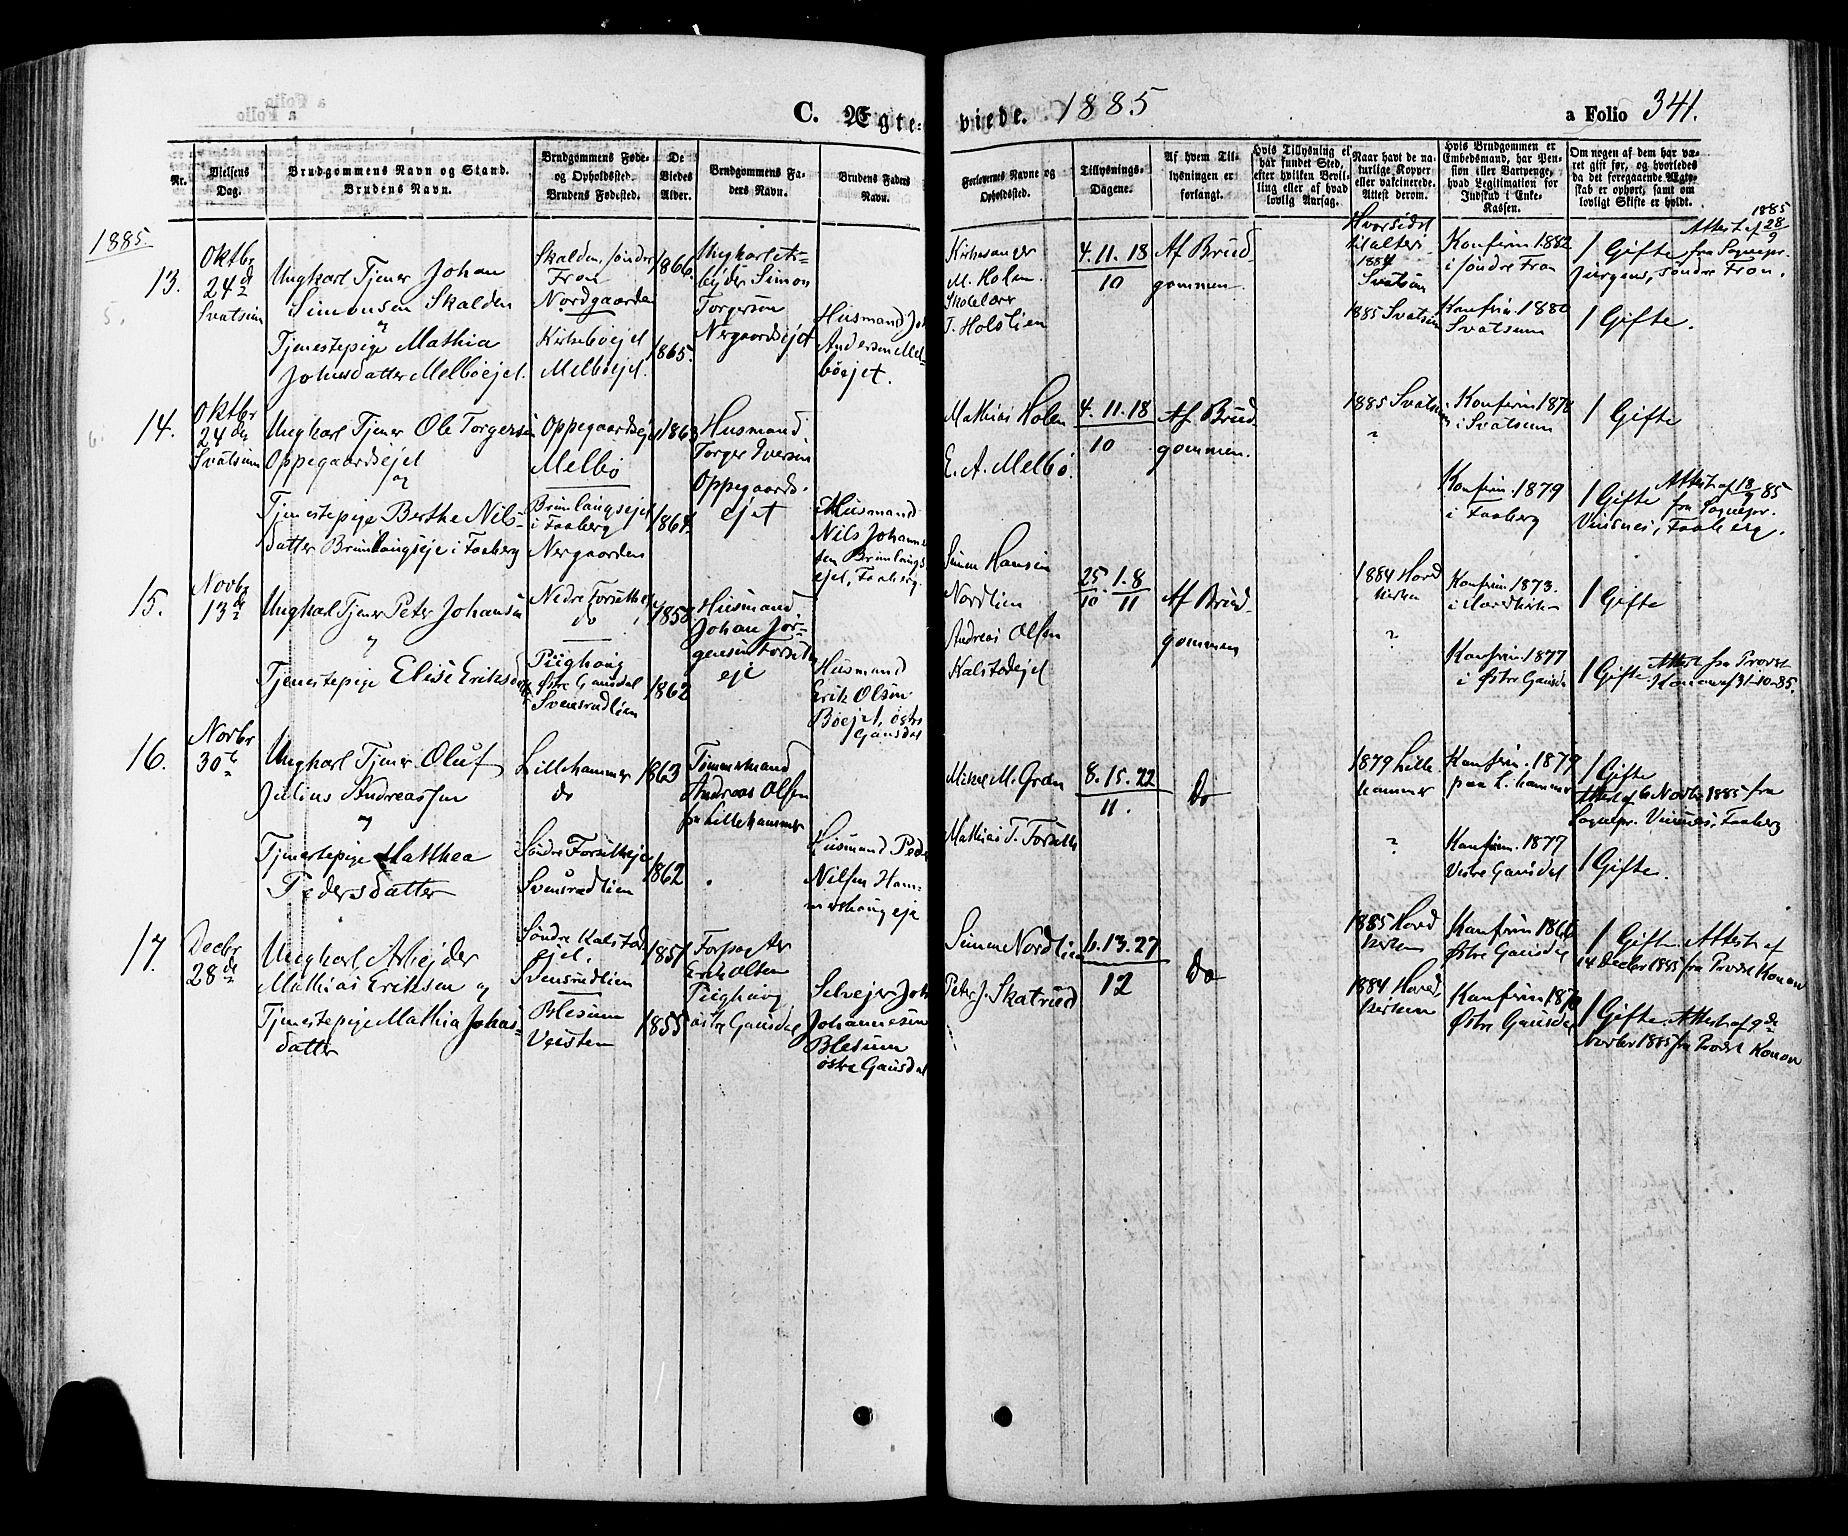 C. Ægte-
viede. 1885
a Folio 341.
Nr.
Vielsens Dag.
Brudgommens Navn og Stand.
Brudens Navn.
Brudgommens Føde- og Opholdssted.
Brudens Fødested.
De Viedes Alder.
Brudgommens Faders Navn.
Brudens Faders Navn.
Forlovernes Navne og Opholdssted.
Tillysnings-Dagene.
Af hvem Tillysningen er forlangt.
Hvis Tillysning ei har fundet Sted, efter hvilken Bevilling eller af hvad lovlig Aarsag.
Naar havt de naturlige Kopper eller vakcinerede. Attest derom.
Hvis Brudgommen er Embedsmand, har Pension eller Vartpenge, hvad Legitimation for Indskud i Enke-Kassen.
Om nogen af dem har været gift før, og hvorledes da det foregaaende Ægteskab er ophørt, samt om lovligt Skifte er holdt.
1885.
13.
Oktbr
24d
Svatsum
Ungkarl Tjener Johan
Simonsen Skalden
og
Tjenestepige Mathia
Johnsdatter Melbøejet.
Skalden, søndre
Fron
Nordgaarden
Kirkebøejet
Melbøejet.
1866
1865.
Simon
Torgersen
Nergaardsejet
Husmand Joh
Andersen Mel-
bøejet.
Kirkesanger
M. Holen.
Skolelærer
T. Holstien
4. 11. 18
10
Af Brud
gommen.
1884
Svatsum
1885 Svatsum
Konfirm 1882
i søndre Fron
Konfirm. 1880
Svatsum
1885
Attest af 28/9
1 Gifte fra Sognepr.
Jürgens, søndre Fron.
1 Gifte.
14.
Oktbr
24de
Svatsum
Ungkarl Tjener Ole Torgersen
Oppegaardsejet
og
Tjenestepige Berthe Nils-
datter Brunlaugseje i Faaberg
Oppegaardsejet
Melbø
Brunlaugsejet
i Faaberg
Nergaarden
1863
1864.
Husmand
Torger Iversen
Oppegaards-
ejet
Husmand
Nils Johann
sen Brunlaugs
ejet, Faaberg.
Mathias Holen
E. A. Melbø
4. 11. 18
10
Af Brud
gommen.
1885 Svatsum
"
Konfirm 1878
i Svatsum
Konfirm. 1879
i Faaberg
1 Gifte
1 Gifte Attest af 18/9 85
fra Sognepr.
Vinsnes, Faaberg.
15.
Novbr
13de
Ungkarl Tjener Peter Johansen
"
Tjenestepige Elise Eriksdatter
Nedre Forsetheje
do
Piighoug
Østre Gausdal
Svensrudlien
1858
1862
Husmand
Johan Jør-
gensen Forseth
eje
Husmand
Erik Olsen
Bøejet, østre
Gausdal
Simen Hansen
Nordlien
Andreas Olsen
Kalstadejet
25/10. 1. 8/11
Af Brud-
gommen
1884 Hoved
kirken
"
Konfirm 1873.
i Hovedkirken
Konfirm. 1877
i Østre Gausdal
1 Gifte
1 Gifte Attest fra Provst
Konow af 31-10-85.
16.
Novbr
30te
Ungkarl Tjener Oluf
Julius Andreassen
og
Tjenestepige Matthea
Pedersdatter
Lillehammer
do
Søndre Forsetheje
Svensrudlien
1863
1862
Tømmermand
Andreas Olsen
fra Lillehammer
Husmand Peder
Nilsen Ham-
mershaug eje
Mikkel M. Gran
Mathias T. Forseth
8. 15. 22
11.
Do
1879 Lille
hammer
"
Konfirm. 1879
paa L. hammer
Konfirm. 1877
Vestre Gausdal
1 Gifte
Attest af 6 Novbr 1885 fra
Sognepr. Vinsnes, Faaberg
1 Gifte.
17.
Decbr
28de
Ungkarl Arbejder
Mathias Eriksen og
Tjenestepige Mathia Johans-
datter
Søndre Kalstad
ejet.
Svensrudlien
Blesum
Veisten
1851
1855
Forpagter
Erik Olsen
Piighoug
østre Gausdal
Selvejer Joh
Johannesen
Blesum
østre Gausdal
Simen Nordlien
Peter J. Skatrud
6. 13. 27
12
Do
1885 Hoved
kirken
1884 Hoved
kirken
Konfirm 1866
Østre Gausdal
Konfirm. 1870
Østre Gausdal
1 Gifte Attest af
14 Decbr 1885 fra Provst Konow
1 Gifte Attest af 9de
Novbr 1885 fra Provst Konow